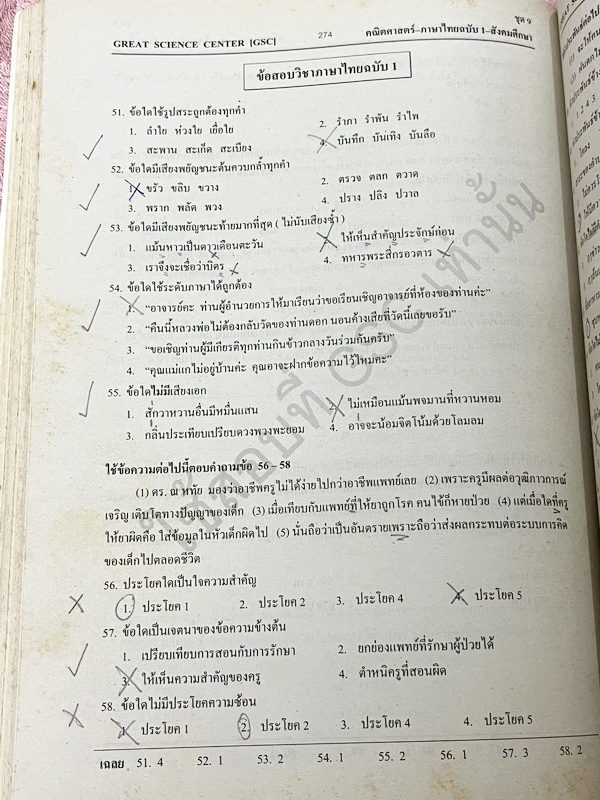 ชุด 9
GREAT SCIENCE CENTER [GSC] 274 คณิตศาสตร์-ภาษาไทยฉบับ 1-สังคมศึกษา
ข้อสอบวิชาภาษาไทยฉบับ 1
51. ข้อใดใช้รูปสระถูกต้องทุกคำ
1. ลำไย ห่วงใย เยื่อใย 2. รำภา รำพัน รำไพ
3. สะพาน สะเก็ด สะเบียง 4. บันทึก บันเทิง บันลือ
52. ข้อใดมีเสียงพยัญชนะต้นควบกล้ำทุกคำ
1. ขรัว ขลิบ ขวาง 2. ตรวจ ตลก ตวาด
3. พราก พลัด พวง 4. ปราง ปลิง ปวาล
53. ข้อใดมีเสียงพยัญชนะท้ายมากที่สุด ( ไม่นับเสียงซ้ำ )
1. แม้นหาวเป็นดาวเดือนตะวัน 2. ให้เห็นสำคัญประจักษ์ก่อน
3. เราจึงจะเชื่อว่าบิดร 4. ทหารพระสี่กรอวตาร
54. ข้อใดใช้ระดับภาษาได้ถูกต้อง
1. “อาจารย์คะ ท่านผู้อำนวยการให้มาเรียนว่าขอเรียนเชิญอาจารย์ที่ห้องของท่านค่ะ”
2. “คืนนี้หลวงพ่อไม่ต้องกลับวัดของท่านดอก นอนค้างเสียที่วัดนี้เลยขอรับ”
3. “ขอเชิญท่านผู้มีเกียรติทุกท่านกินข้าวกลางวันร่วมกันครับ”
4. “คุณแม่แกไม่อยู่บ้านค่ะ คุณอาจะฝากข้อความไว้ไหมคะ”
55. ข้อใดไม่มีเสียงเอก
1. สักวาหวานอื่นมีหมื่นแสน 2. ไม่เหมือนแม้นพจมานที่หวานหอม
3. กลิ่นประเทียบเปรียบดวงพวงพะยอม 4. อาจจะน้อมจิตโน้มด้วยโลมลม
ใช้ข้อความต่อไปนี้ตอบคำถามข้อ 56 – 58
(1) ดร. ณ หทัย มองว่าอาชีพครูไม่ได้ง่ายไปกว่าอาชีพแพทย์เลย (2) เพราะครูมีผลต่อวุฒิภาวการณ์
เจริญ เติบโตทางปัญญาของเด็ก (3) เมื่อเทียบกับแพทย์ที่ให้ยาถูกโรค คนไข้ก็หายป่วย (4) แต่เมื่อใดที่ครู
ให้ยาผิดคือ ใส่ข้อมูลในหัวเด็กผิดไป (5) นั่นถือว่าเป็นอันตรายเพราะถือว่าส่งผลกระทบต่อระบบการคิด
ของเด็กไปตลอดชีวิต
56. ประโยคใดเป็นใจความสำคัญ
1. ประโยค 1 2. ประโยค 2 3. ประโยค 4 4. ประโยค 5
57. ข้อใดเป็นเจตนาของข้อความข้างต้น
1. เปรียบเทียบการสอนกับการรักษา 2. ยกย่องแพทย์ที่รักษาผู้ป่วยได้
3. ให้เห็นความสำคัญของครู 4. ตำหนิครูที่สอนผิด
58. ข้อใดไม่มีประโยคความซ้อน
1. ประโยค 1 2. ประโยค 2 3. ประโยค 4 4. ประโยค 5
เฉลย 51. 4 52. 1 53. 2 54. 1 55. 2 56. 1 57. 3 58. 2